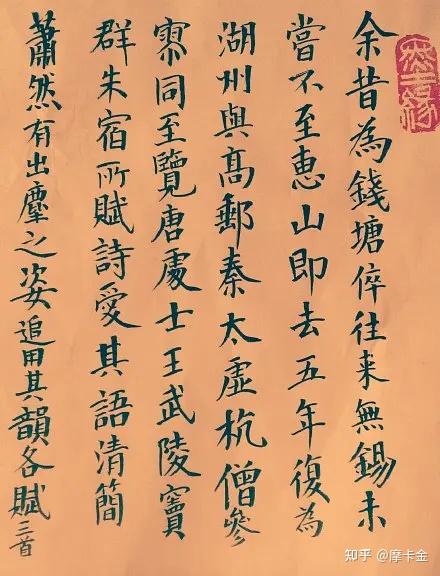 余昔為錢塘倅往来無錫未
嘗不至惠山即去五年復為
湖州與髙郵秦太虛杭僧參
寥同至覽唐處士王武陵竇
群朱宿所賦詩愛其語清簡
蕭然有出塵之姿追用其韻各賦三首
知乎 @摩卡金